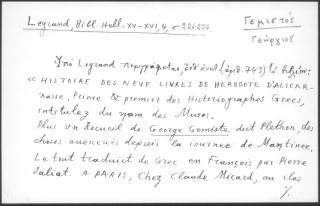 Legrand, Bibl. Hell. XV-XVI, 4, σ. 226-228.
Γεμιστός
Γεώργιος
Ὑπό Legrand περιγράφεται, (ἀριθ. 743) τό βιβλίον:
« HISTOIRE DES NEUF LIVRES DE HERODOTE D'ALICAR-
nasse, Prince & premier des Historiographes Grecs,
intitulez du nom des Muses.
Plus un Recueil de George Gemiste dict Plethon, des
choses avenues depuis la iournee de Mantinee.
Le tout traduict de Grec en François par Pierre
Saliat. A PARIS, Chez Claude Micard, au clos
%.